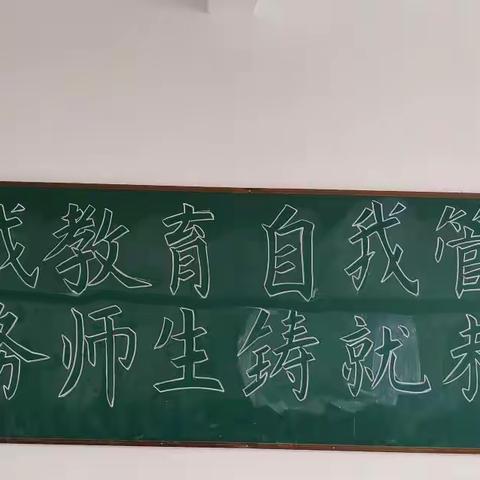 我教育 自我管
务师生 铸就